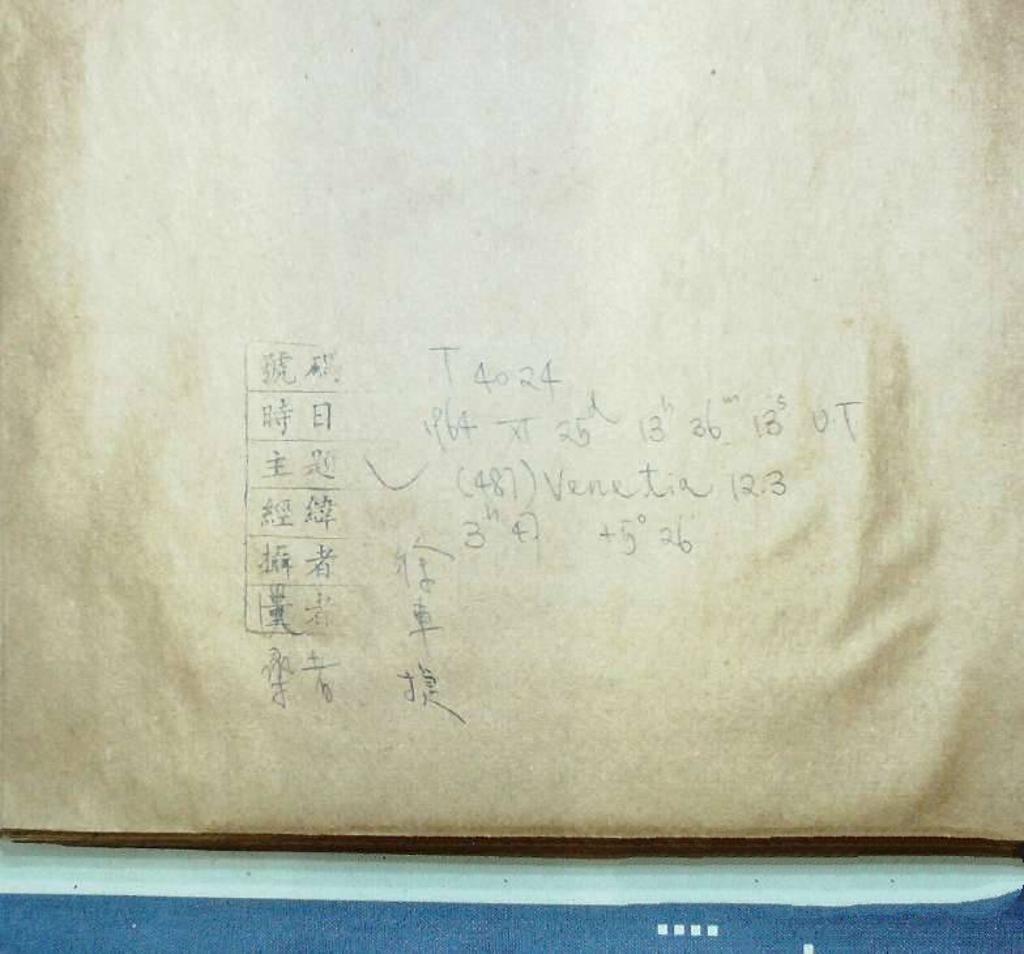 號碼 T 4024
時日 1964 XI 25d 13h 36m 13s U.T
主題 (487) Venetia 12.3
經緯 3h 47 +5° 26
攝者 徐
量者 車
者